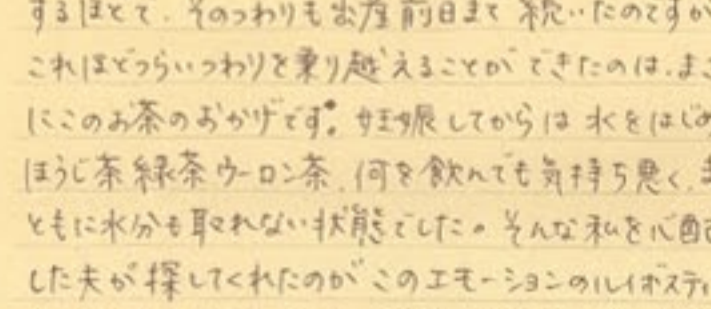 するほどで、そのつわりも出産前日まで続いたのですが
これほどつらいつわりを乗り越えることができたのは、まさ
にこのお茶のおかげです。妊娠してからは水をはじめ
ほうじ茶 緑茶 ウーロン茶、何を飲んでも気持ち悪く、ま
ともに水分も取れない状態でした。そんな私を心配
した夫が探してくれたのが このエモーションのルイボスティ